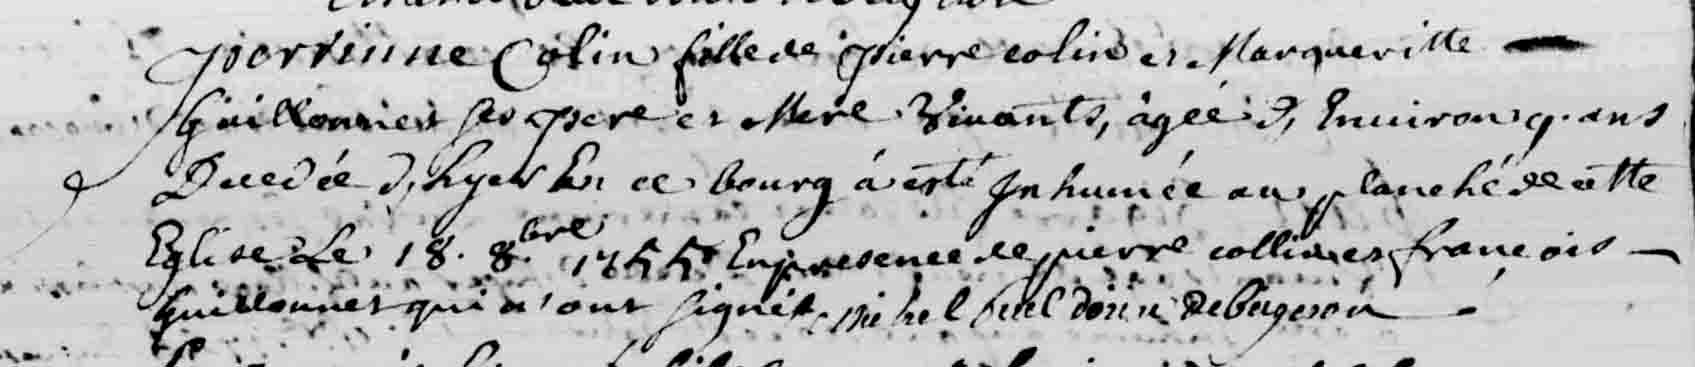 perrinne Colin fille de pierre colin et Margueritte
Guillonnet ses pere et Mere Vivants, àgéé d, Environ 9. ans
Decedée d, hyer En ce bourg á esté Inhumée au planché de cette
Eglise Le 18. 8.bre 1755 En presence de pierre collin et françois
Guillonnet qui n'ont signés Michel